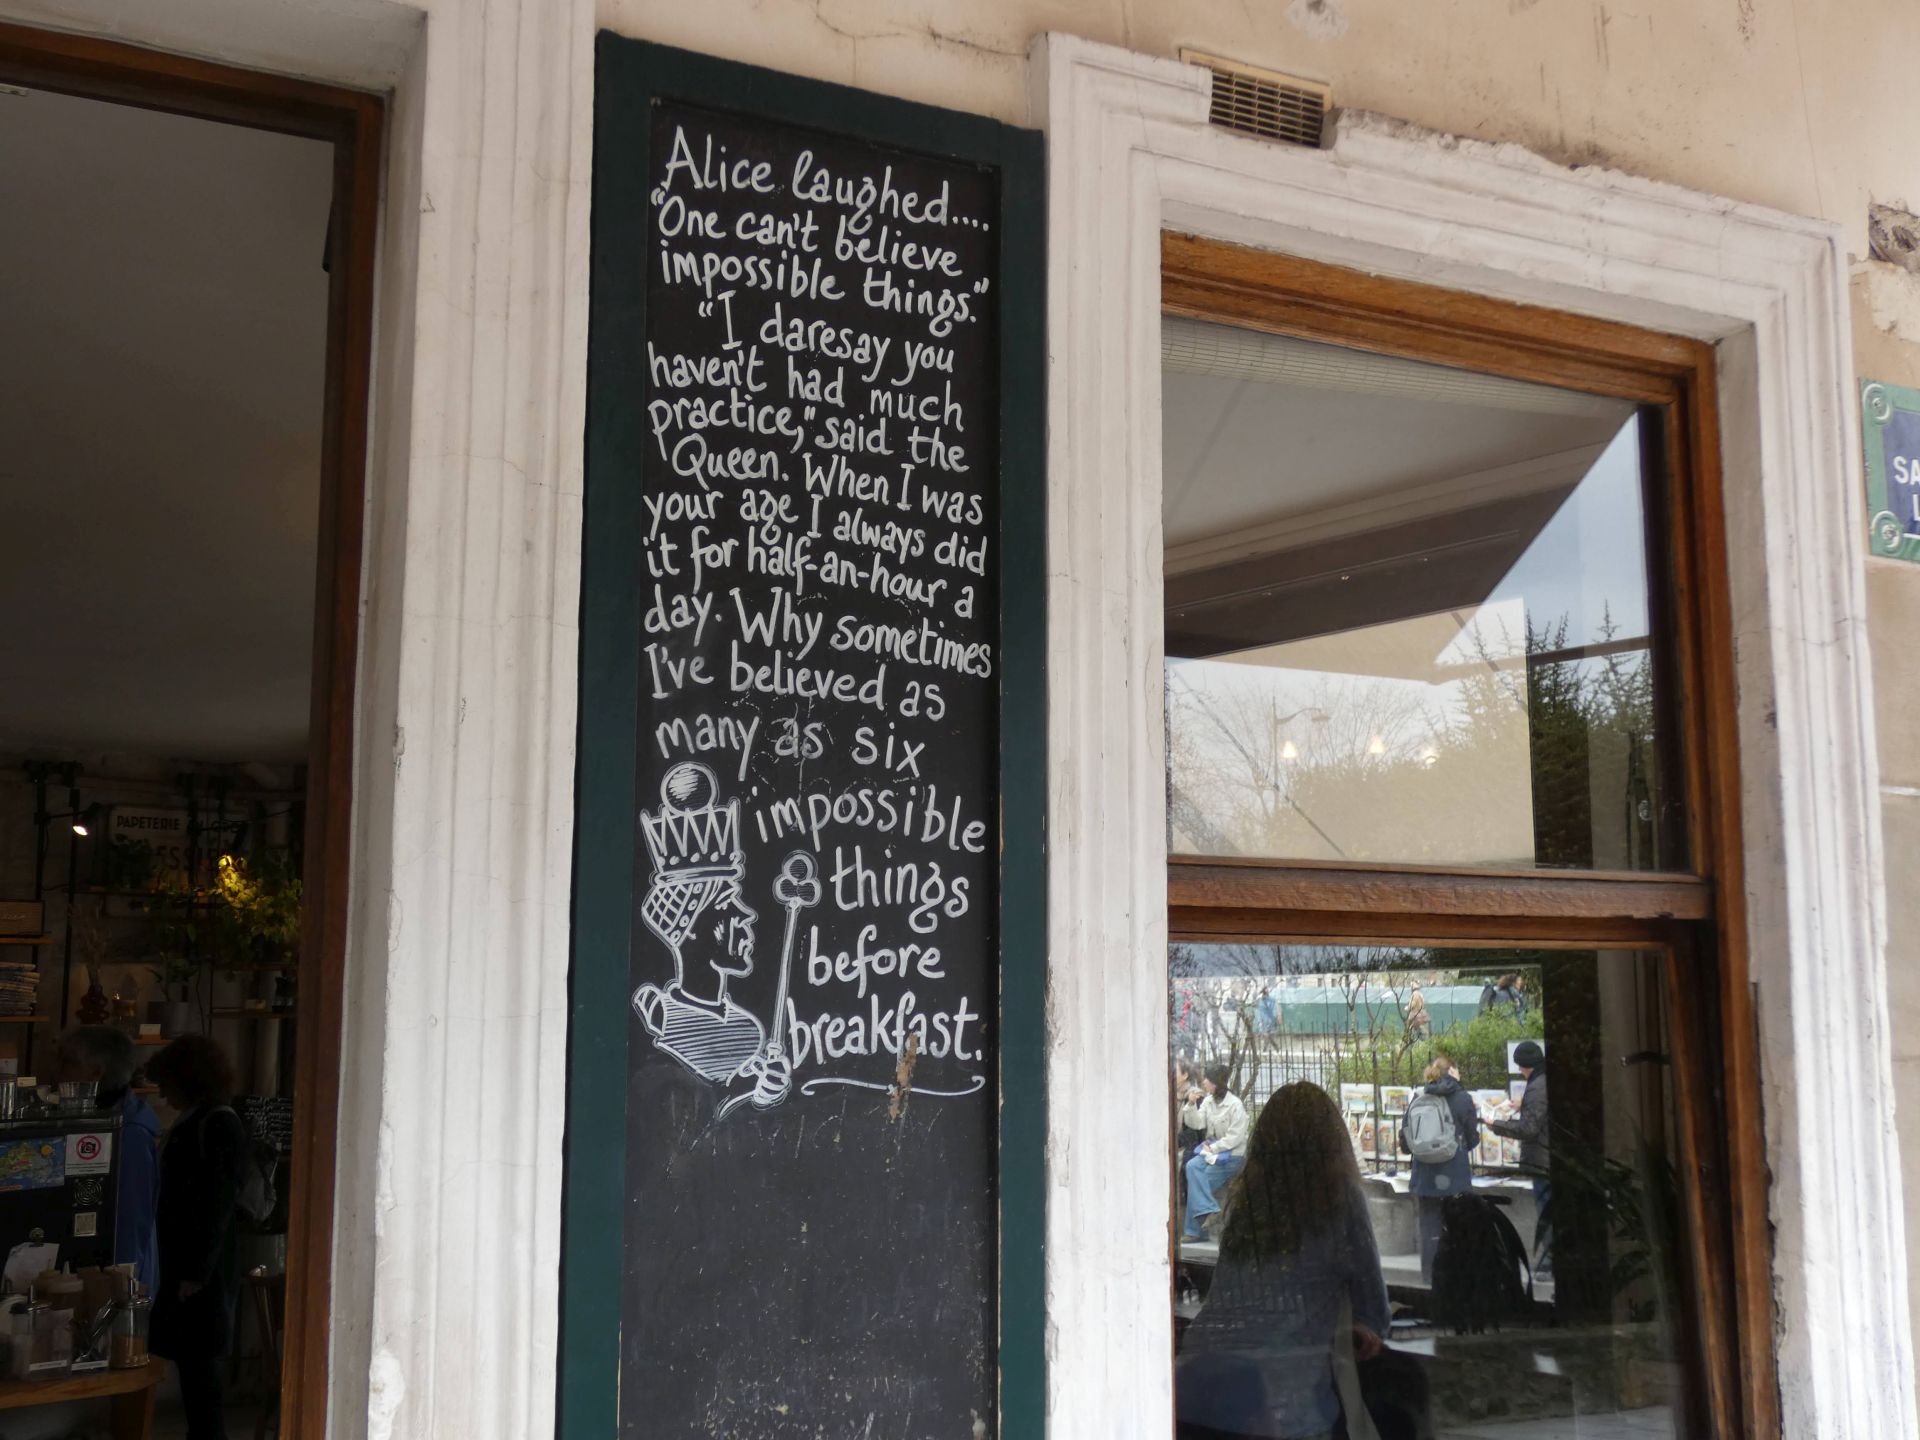 Alice laughed....
“One can't believe
impossible things.”
“I daresay you
haven't had much
practice,” said the
Queen. When I was
your age I always did
it for half-an-hour a
day. Why sometimes
I've believed as
many as six
impossible
things
before
breakfast.
PAPETERIE
SA